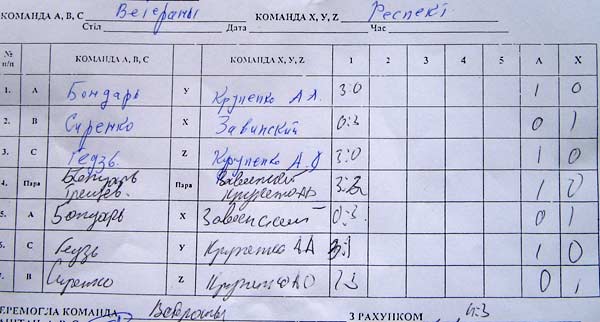 КОМАНДА А, В, С Ветераны КОМАНДА X, У, Z Респект
Стіл Дата Час
№ п/п КОМАНДА А, В, С КОМАНДА X, У, Z 1 2 3 4 5 А X
1. А Бондарь У Крупенко А 3:0 1 0
2. В Сиренко X Завинский 0:3 0 1
3. С Гедзь Z Крупенко А 3:0 1 0
4. Пара Бондарь Пара 3:2 1 0
5. А Бондарь X 0:3 0 1
6. С Гедзь У Крупенко 3:1 1 0
7. В Сиренко Z Крупенко 0 1
ПЕРЕМОГЛА КОМАНДА Ветераны З РАХУНКОМ 4:3